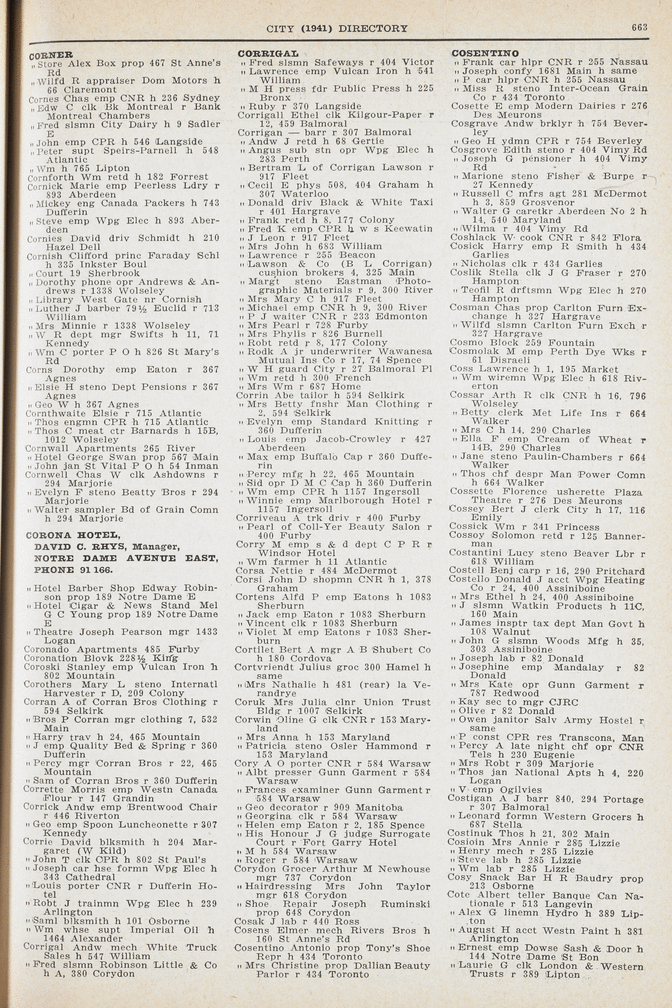 CITY (1941) DIRECTORY 663
CORNER
" Store Alex Box prop 467 St Anne's
Rd
" Wilfd R appraiser Dom Motors h
66 Claremont
Cornes Chas emp CNR h 236 Sydney
" Edw C clk Bk Montreal r Bank
Montreal Chambers
" Fred slsmn City Dairy h 9 Sadler
E
" John emp CPR h 546 Langside
" Peter supt Speirs-Parnell h 548
Atlantic
" Wm h 765 Lipton
Cornforth Wm retd h 182 Forrest
Cornick Marie emp Peerless Ldry r
893 Aberdeen
" Mickey eng Canada Packers h 743
Dufferin
" Steve emp Wpg Elec h 893 Aber-
deen
Cornies David driv Schmidt h 210
Hazel Dell
Cornish Clifford princ Faraday Schl
h 335 Inkster Boul
" Court 19 Sherbrook
" Dorothy phone opr Andrews & An-
drews r 1338 Wolseley
" Library West Gate nr Cornish
" Luther J barber 79½ Euclid r 713
William
" Mrs Minnie r 1338 Wolseley
" W R dept mgr Swifts h 11, 71
Kennedy
" Wm C porter P O h 826 St Mary's
Rd
Corns Dorothy emp Eaton r 367
Agnes
" Elsie H steno Dept Pensions r 367
Agnes
" Geo W h 367 Agnes
Cornthwaite Elsie r 715 Atlantic
" Thos engmn CPR h 715 Atlantic
" Thos C meat ctr Barnards h 15B,
1012 Wolseley
Cornwall Apartments 265 River
" Hotel George Swan prop 567 Main
" John jan St Vital P O h 54 Inman
Cornwell Chas W clk Ashdowns r
294 Marjorie
" Evelyn F steno Beatty Bros r 294
Marjorie
" Walter sampler Bd of Grain Comn
h 294 Marjorie
CORONA HOTEL,
DAVID C. RHYS, Manager,
NOTRE DAME AVENUE EAST,
PHONE 91 166.
" Hotel Barber Shop Edway Robin-
son prop 189 Notre Dame E
" Hotel Cigar & News Stand Mel
G C Young prop 189 Notre Dame
E
" Theatre Joseph Pearson mgr 1433
Logan
Coronado Apartments 485 Furby
Coronation Block 228½ King
Coroski Stanley emp Vulcan Iron h
802 Mountain
Corothers Mary L steno Internatl
Harvester r D, 209 Colony
Corran A of Corran Bros Clothing r
594 Selkirk
" Bros P Corran mgr clothing 7, 532
Main
" Harry trav h 24, 465 Mountain
" J emp Quality Bed & Spring r 360
Dufferin
" Percy mgr Corran Bros r 22, 465
Mountain
" Sam of Corran Bros r 360 Dufferin
Corrette Morris emp Westn Canada
Flour r 147 Grandin
Corrick Andw emp Brentwood Chair
r 446 Riverton
" Geo emp Spoon Luncheonette r 307
Kennedy
Corrie David blksmith h 204 Mar-
garet (W Kild)
" John T clk CPR h 802 St Paul's
" Joseph car hse formn Wpg Elec h
343 Cathedral
" Louis porter CNR r Dufferin Ho-
tel
" Robt J trainmn Wpg Elec h 239
Arlington
" Saml blksmith h 101 Osborne
" Wm whse supt Imperial Oil h
1464 Alexander
Corrigal Andw mech White Truck
Sales h 547 William
" Fred slsmn Robinson Little & Co
h A, 380 Corydon
CORRIGAL
" Fred slsmn Safeways r 404 Victor
" Lawrence emp Vulcan Iron h 541
William
" M H press fdr Public Press h 225
Bronx
" Ruby r 370 Langside
Corrigall Ethel clk Kilgour-Paper r
12, 459 Balmoral
Corrigan — barr r 307 Balmoral
" Andw J retd h 68 Gertie
" Angus sub stn opr Wpg Elec h
283 Perth
" Bertram L of Corrigan Lawson r
917 Fleet
" Cecil E phys 508, 404 Graham h
307 Waterloo
" Donald driv Black & White Taxi
r 401 Hargrave
" Frank retd h 8, 177 Colony
" Fred K emp CPR h w s Keewatin
" J Leon r 917 Fleet
" Mrs John h 683 William
" Lawrence r 255 Beacon
" Lawson & Co (B L Corrigan)
cushion brokers 4, 325 Main
" Margt steno Eastman Photo-
graphic Materials r 9, 300 River
" Mrs Mary C h 917 Fleet
" Michael emp CNR h 9, 300 River
" P J waiter CNR r 233 Edmonton
" Mrs Pearl r 728 Furby
" Mrs Phylis r 826 Burnell
" Robt retd r 8, 177 Colony
" Rodk A jr underwriter Wawanesa
Mutual Ins Co r 17, 74 Spence
" W H guard City r 27 Balmoral Pl
" Wm retd h 300 French
" Mrs Wm r 687 Home
Corrin Abe tailor h 594 Selkirk
" Mrs Betty fnshr Man Clothing r
2, 594 Selkirk
" Evelyn emp Standard Knitting r
360 Dufferin
" Louis emp Jacob-Crowley r 427
Aberdeen
" Max emp Buffalo Cap r 360 Duffe-
rin
" Percy mfg h 22, 465 Mountain
" Sid opr D M C Cap h 360 Dufferin
" Wm emp CPR h 1157 Ingersoll
" Winnie emp Marlborough Hotel r
1157 Ingersoll
Corriveau A trk driv r 400 Furby
" Pearl of Coll-Yer Beauty Salon r
400 Furby
Corry M emp s & d dept C P R r
Windsor Hotel
" Wm farmer h 11 Atlantic
Corsa Nettie r 484 McDermot
Corsi John D shopmn CNR h 1, 378
Graham
Cortens Alfd P emp Eatons h 1083
Sherburn
" Jack emp Eaton r 1083 Sherburn
" Vincent clk r 1083 Sherburn
" Violet M emp Eatons r 1083 Sher-
burn
Cortilet Bert A mgr A B Shubert Co
h 180 Cordova
Cortvriendt Julius groc 300 Hamel h
same
" Mrs Nathalie h 481 (rear) la Ve-
randrye
Coruk Mrs Julia clnr Union Trust
Bldg r 1007 Selkirk
Corwin Oline G clk CNR r 153 Mary-
land
" Mrs Anna h 153 Maryland
" Patricia steno Osler Hammond r
153 Maryland
Cory A O porter CNR r 584 Warsaw
" Albt presser Gunn Garment r 584
Warsaw
" Frances examiner Gunn Garment r
584 Warsaw
" Geo decorator r 909 Manitoba
" Georgina clk r 584 Warsaw
" Helen emp Eaton r 2, 185 Spence
" His Honour J G judge Surrogate
Court r Fort Garry Hotel
" M h 584 Warsaw
" Roger r 584 Warsaw
Corydon Grocer Arthur M Newhouse
mgr 737 Corydon
" Hairdressing Mrs John Taylor
mgr 618 Corydon
" Shoe Repair Joseph Ruminski
prop 648 Corydon
Cosak J lab r 440 Ross
Cosens Elmer mech Rivers Bros h
160 St Anne's Rd
Cosentino Antonio prop Tony's Shoe
Repr h 434 Toronto
" Mrs Christine prop Dallian Beauty
Parlor r 434 Toronto
COSENTINO
" Frank car hlpr CNR r 255 Nassau
" Joseph confy 1681 Main h same
" P car hlpr CNR h 255 Nassau
" Miss R steno Inter-Ocean Grain
Co r 434 Toronto
Cosette E emp Modern Dairies r 276
Des Meurons
Cosgrave Andw brklyr h 754 Bever-
ley
" Geo H ydmn CPR r 754 Beverley
Cosgrove Edith steno r 404 Vimy Rd
" Joseph G pensioner h 404 Vimy
Rd
" Marione steno Fisher & Burpe r
27 Kennedy
" Russell C mfrs agt 281 McDermot
h 3, 859 Grosvenor
" Walter G caretkr Aberdeen No 2 h
14, 540 Maryland
" Wilma r 404 Vimy Rd
Coshlack W cook CNR r 842 Flora
Cosick Harry emp R Smith h 434
Garlies
" Nicholas clk r 434 Garlies
Coslik Stella clk J G Fraser r 270
Hampton
" Teofil R drftsmn Wpg Elec h 270
Hampton
Cosman Chas prop Carlton Furn Ex-
change h 327 Hargrave
" Wilfd slsmn Carlton Furn Exch r
327 Hargrave
Cosmo Block 259 Fountain
Cosmolak M emp Perth Dye Wks r
61 Disraeli
Coss Lawrence h 1, 195 Market
" Wm wiremn Wpg Elec h 618 Riv-
erton
Cossar Arth R clk CNR h 16, 796
Wolseley
" Betty clerk Met Life Ins r 664
Walker
" Mrs C h 14, 290 Charles
" Ella F emp Cream of Wheat r
14B, 290 Charles
" Jane steno Paulin-Chambers r 664
Walker
" Thos chf despr Man Power Comn
h 664 Walker
Cossette Florence usherette Plaza
Theatre r 276 Des Meurons
Cossey Bert J clerk City h 17, 116
Emily
Cossick Wm r 341 Princess
Cossoy Solomon retd r 125 Banner-
man
Costantini Lucy steno Beaver Lbr r
618 William
Costell Benj carp r 16, 290 Pritchard
Costello Donald J acct Wpg Heating
Co r 24, 400 Assiniboine
" Mrs Ethel h 24, 400 Assiniboine
" J slsmn Watkin Products h 11C,
160 Main
" James insptr tax dept Man Govt h
108 Walnut
" John G slsmn Woods Mfg h 35,
303 Assiniboine
" Joseph lab r 82 Donald
" Josephine emp Mandalay r 82
Donald
" Mrs Kate opr Gunn Garment r
787 Redwood
" Kay sec to mgr CJRC
" Olive r 82 Donald
" Owen janitor Salv Army Hostel r
same
" P const CPR res Transcona, Man
" Percy A late night chf opr CNR
Tels h 230 Eugenie
" Mrs Robt r 309 Marjorie
" Thos jan National Apts h 4, 220
Logan
" V emp Ogilvies
Costigan A J barr 840, 294 Portage
r 307 Balmoral
" Leonard formn Western Grocers h
687 Stella
Costinuk Thos h 21, 302 Main
Cosioin Mrs Annie r 285 Lizzie
" Henry mech r 285 Lizzie
" Steve lab h 285 Lizzie
" Wm lab r 285 Lizzie
Cosy Snack Bar H R Baudry prop
213 Osborne
Cote Albert teller Banque Can Na-
tionale r 513 Langevin
" Alex G linemn Hydro h 389 Lip-
ton
" August H acct Westn Paint h 381
Arlington
" Ernest emp Dowse Sash & Door h
144 Notre Dame St Bon
" Laurie G clk London & Western
Trusts r 389 Lipton